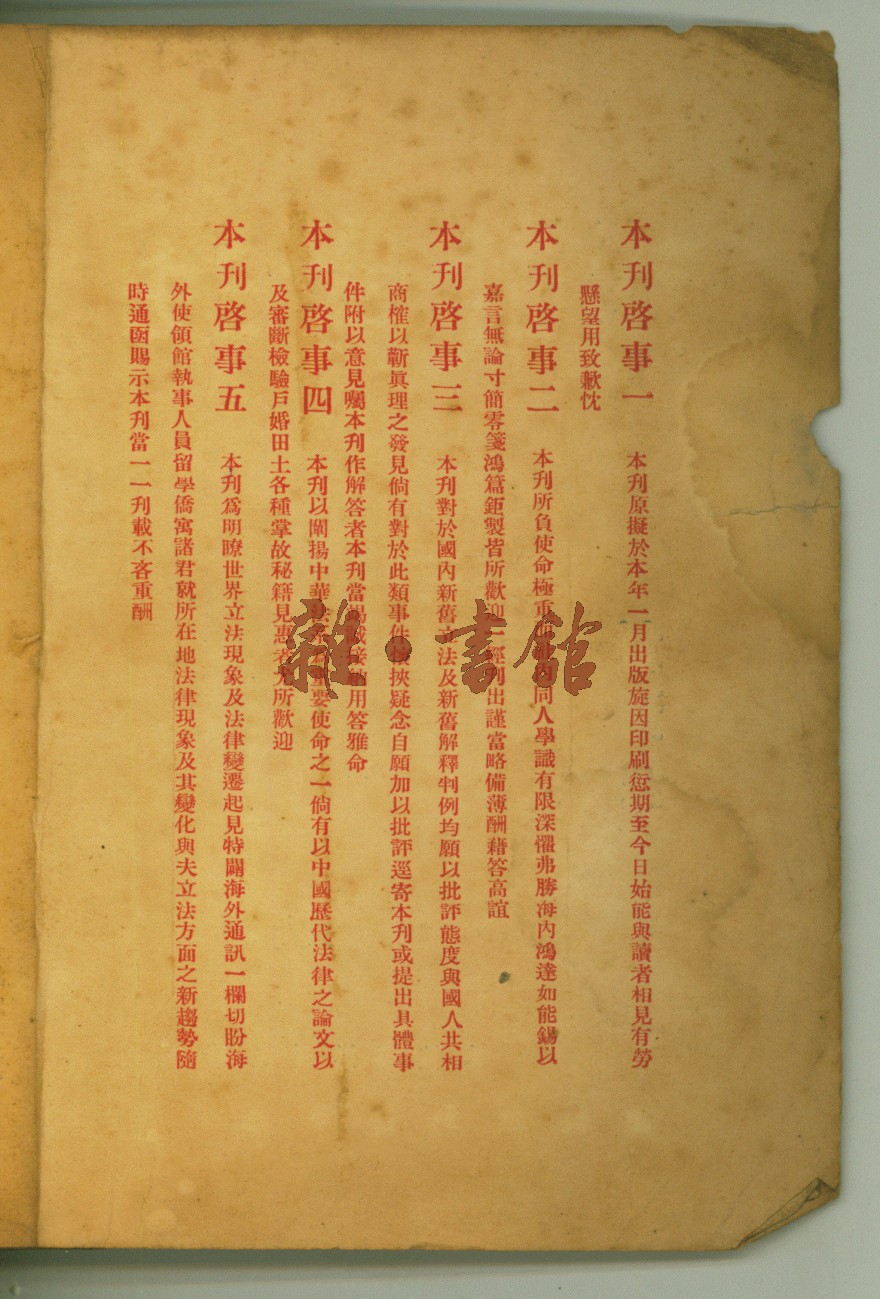 本刋啓事一　本刋原擬於本年一月出版旋因印刷愆期至今日始能與讀者相見有勞
懸望用致歉忱
本刋啓事二　本刋所負使命極重同人學識有限深懼弗勝海內鴻達如能錫以
嘉言無論寸簡零箋鴻篇鉅製皆所歡迎一經刋出謹當略備薄酬藉答高誼
本刋啓事三　本刋對於國內新舊立法及新舊解釋判例均願以批評態度與國人共相
商榷以蘄眞理之發見倘有對於此類事件懷挾疑念自願加以批評逕寄本刋或提出具體事
件附以意見囑本刋作解答者本刋當竭誠接納用答雅命
本刋啓事四　本刋以闡揚中華法系爲重要使命之一倘有以中國歷代法律之論文以
及審斷檢驗戶婚田土各種掌故秘籍見惠者尤所歡迎
本刋啓事五　本刋爲明瞭世界立法現象及法律變遷起見特闢海外通訊一欄切盼海
外使領館執事人員留學僑寓諸君就所在地法律現象及其變化與夫立法方面之新趨勢隨
時通函賜示本刋當一一刋載不吝重酬
雜·書館